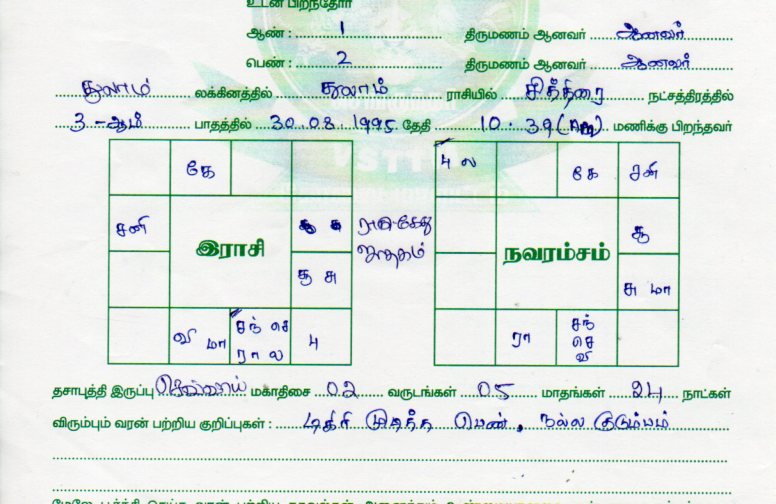 உடன் பிறந்தோர்
ஆண் : 1 திருமணம் ஆனவர் ஆணவர்
பெண் : 2 திருமணம் ஆனவர் ஆணவர்
துலாம் லக்கினத்தில் துலாம் ராசியில் சித்திரை நட்சத்திரத்தில்
3-ஆம் பாதத்தில் 30.08.1995 தேதி 10.39(AM) மணிக்கு பிறந்தவர்
கே
4 ல கே சனி
சனி ராகு கேது சூ
ஜாதகம்
இராசி நவாம்சம்
சூ சு சு மா
வி மா சந் செ 4 ரா சந்
ரா ல செ
வி
தசாபுத்தி இருப்பு செவ்வாய் மகாதிசை 02 வருடங்கள் 05 மாதங்கள் 24 நாட்கள்
விரும்பும் வரன் பற்றிய குறிப்புகள் : டிகிரி முடித்த பெண், நல்ல குடும்பம்